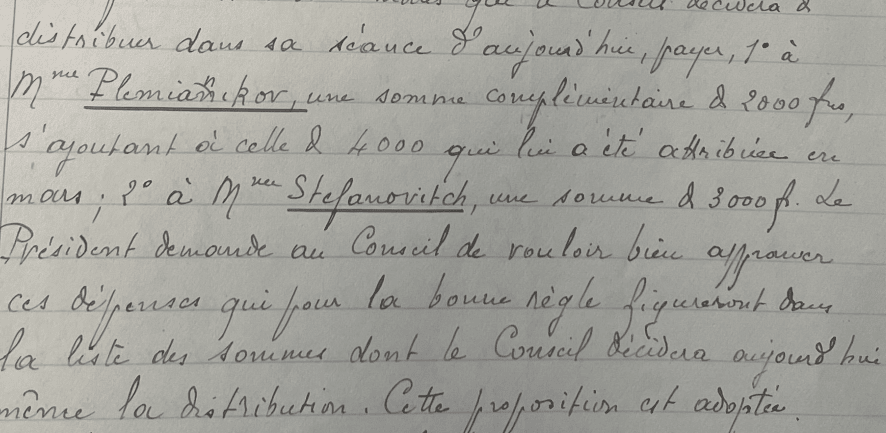 que le Conseil décidera de
distribuer dans sa séance d'aujourd'hui, payer, 1° à
Mme Plemiannikov, une somme complémentaire de 2000 frs,
s'ajoutant à celle de 4000 qui lui a été attribuée en
mars; 2° à Mme Stefanovitch, une somme de 3000 f. Le
Président demande au Conseil de vouloir bien approuver
ces dépenses qui pour la bonne règle figureront dans
la liste des sommes dont le Conseil décidera aujourd'hui
même la distribution. Cette proposition est adoptée.